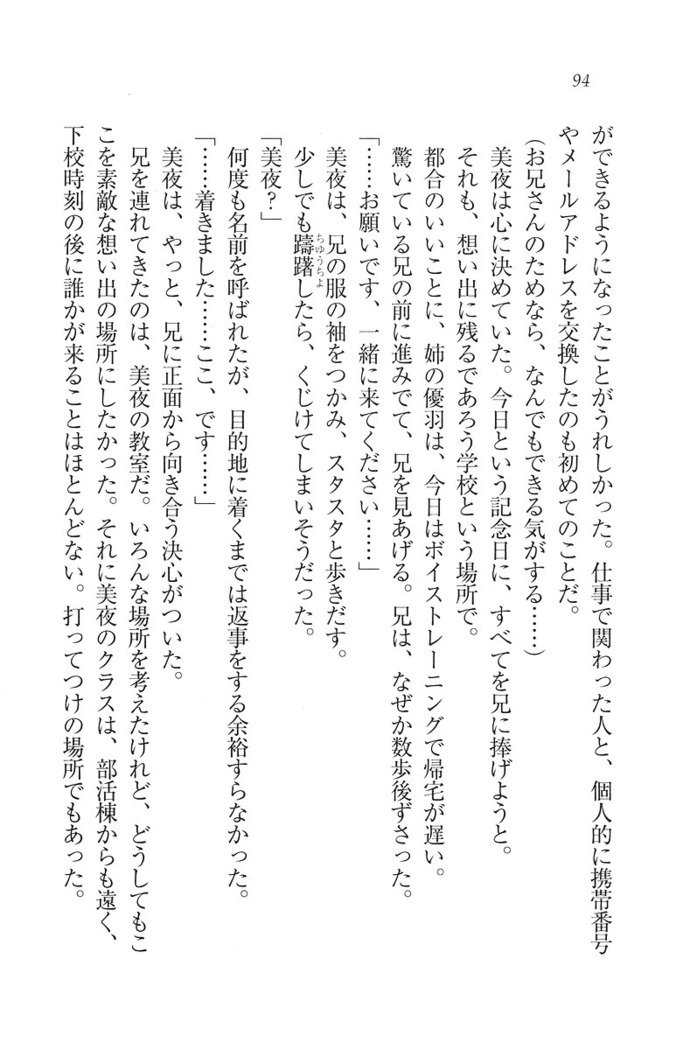 94
ができるようになったことがうれしかった。仕事で関わった人と、個人的に携帯番号
やメールアドレスを交換したのも初めてのことだ。
（お兄さんのためなら、なんでもできる気がする……）
美夜は心に決めていた。今日という記念日に、すべてを兄に捧げようと。
それも、想い出に残るであろう学校という場所で。
都合のいいことに、姉の優羽は、今日はボイストレーニングで帰宅が遅い。
驚いている兄の前に進みでて、兄を見あげる。兄は、なぜか数歩後ずさった。
「……お願いです、一緒に来てください……」
美夜は、兄の服の袖をつかみ、スタスタと歩きだす。
少しでも躊躇ちゅうちょしたら、くじけてしまいそうだった。
「美夜？」
何度も名前を呼ばれたが、目的地に着くまでは返事をする余裕すらなかった。
「……着きました……ここ、です……」
美夜は、やっと、兄に正面から向き合う決心がついた。
兄を連れてきたのは、美夜の教室だ。いろんな場所を考えたけれど、どうしてもこ
こを素敵な想い出の場所にしたかった。それに美夜のクラスは、部活棟からも遠く、
下校時刻の後に誰かが来ることはほとんどない。打ってつけの場所でもあった。